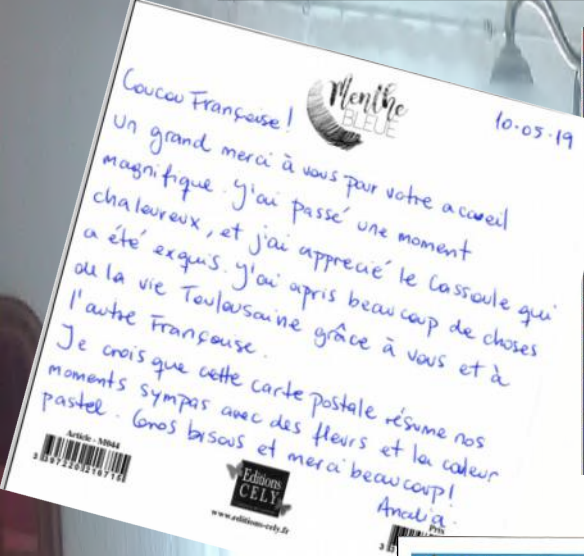 Menthe
BLEUE
10.05.19
Coucou Françoise!
un grand merci à vous pour votre acceuil
magnifique. J'ai passé une moment
chaleureux, et j'ai apprecié le Cassoule qui
a été exquis. J'ai apris beaucoup de choses
de la vie Toulousaine grâce à vous et à
l'autre Françoise.
Je crois que cette carte postale résume nos
moments sympas avec des fleurs et la couleur
pastel. Gros bisous et merci beaucoup!
Analia.
Article - M044
Editions
CELY
www.editions-cely.fr
Prix